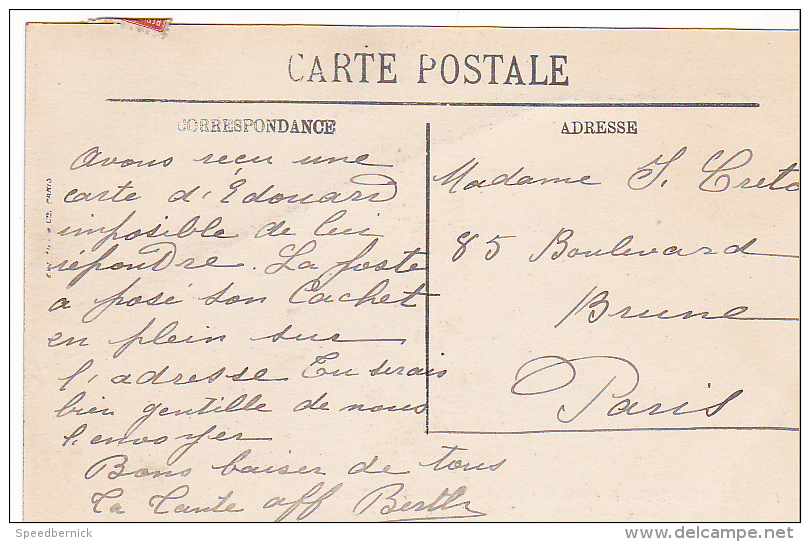 CARTE POSTALE
CORRESPONDANCE
Avons reçu une
carte d'Edouard
imposible de lui
répondre. La poste
a posé son Cachet
en plein sur
l'adresse Tu serais
bien gentille de nous
l'envoyer
Bons baiser de tous
Ta Tante aff Berth
ADRESSE
Madame J. Creto
85 Boulevard
Brune
Paris
Speedbernick
delcampe.net